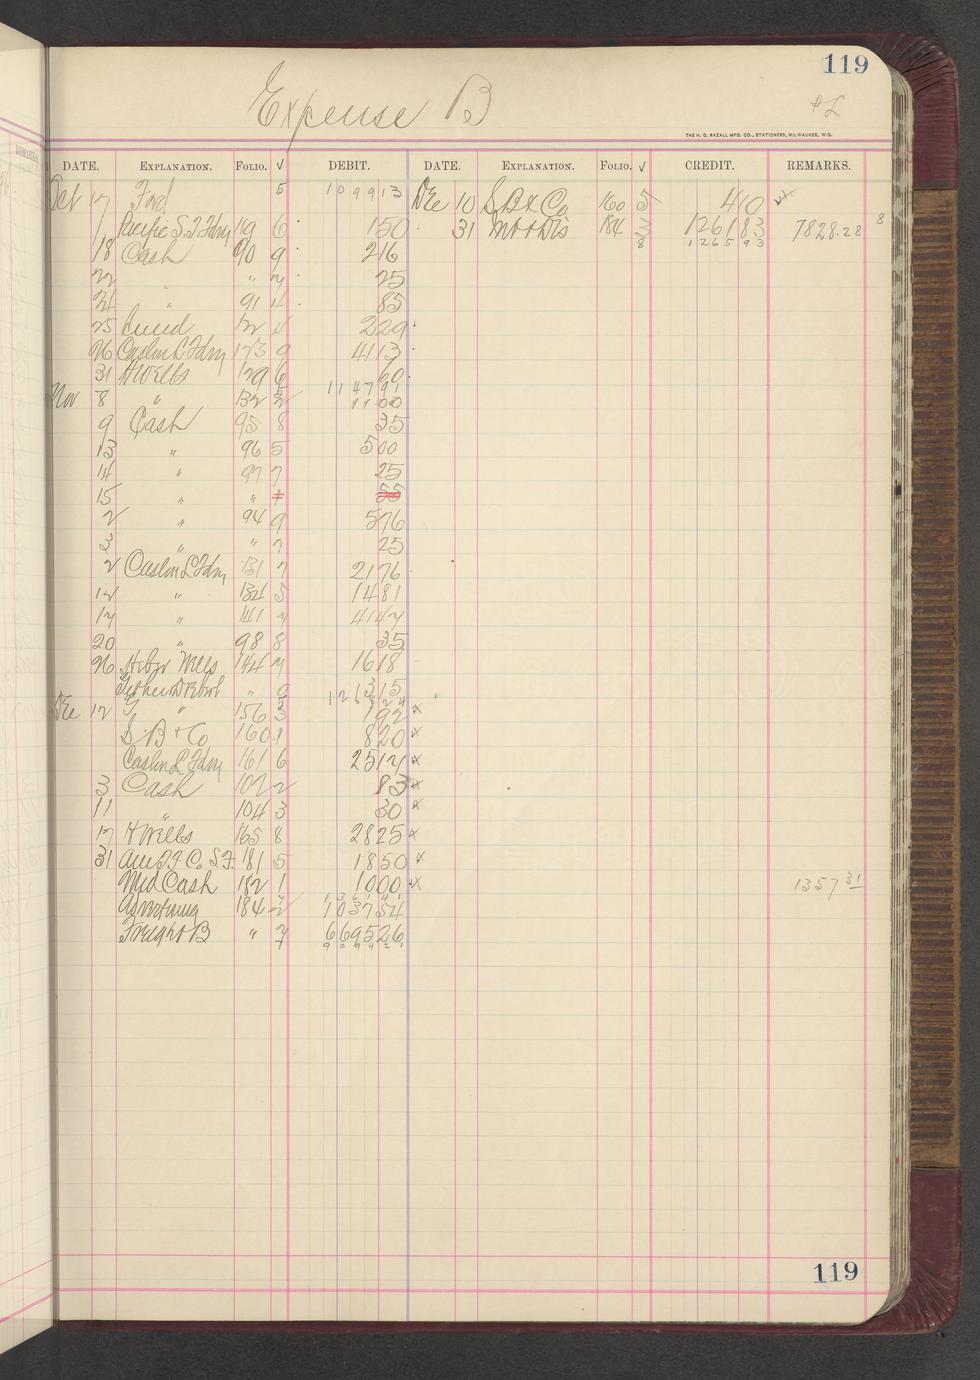 119
Expense B
THE H. G. RAZALL MFG. CO., STATIONERS, MILWAUKEE, WIS.
DATE. EXPLANATION. FOLIO. √ DEBIT. DATE. EXPLANATION. FOLIO. √ CREDIT. REMARKS.
Oct 17 Ford 5 109913 Dec 10 S B & Co 160 5 410
Pacific S. T. Fdry 119 6 150 31 184 3 126183 7828.28 8
18 Cash 90 9 216 8 126593
22 " " 7 25
24 " 91 4 85
25 122 4 229
26 Caslon L Fdry 123 9 4113
31 H Wells 129 6 60
114791
Nov 8 " 132 2 1100
9 Cash 95 8 35
13 " 96 5 500
14 " 97 7 25
15 " " 55
2 " 94 9 576
3 " " 7 25
2 Caslon L Fdry 131 7 2176
12 " 134 5 1481
17 " 141 7 4147
20 " 98 8 35
26 Wells 144 7 1618
" 9 315
Dec 12 " 156 3 192
S B & Co 160 1 820
Caslon L Fdry 161 6 2512
3 Cash 102 2 83
11 " 104 3 30
17 H Wells 165 8 2825
31 Am T F Co. S. F. 181 5 1850
Mid Cash 182 1 1000 1357 31
Advertising 184 2 103754
Freight B " 7 669526
909421
119